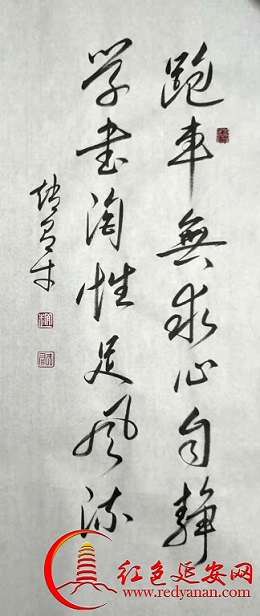 跑车無求心自静
学书淘性足风流
红色延安网
www.redyanan.com